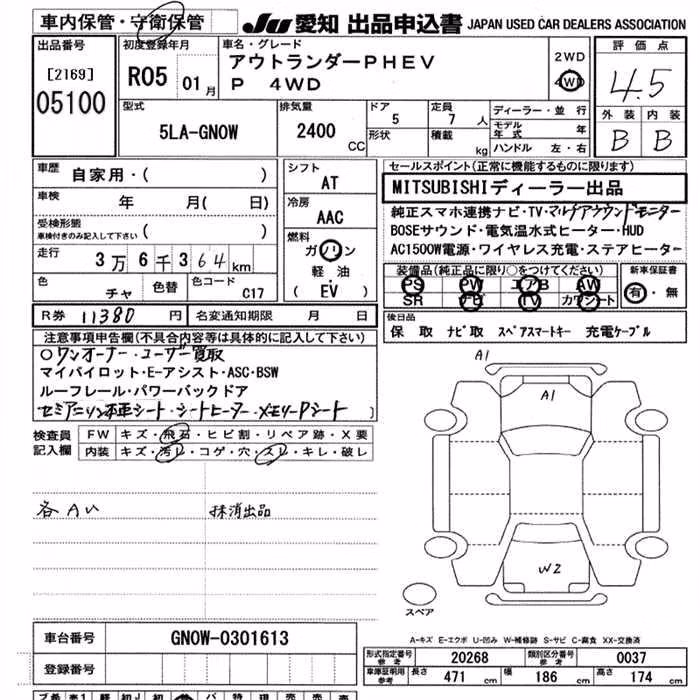 車内保管・守衛保管
JU 愛知 出品申込書 JAPAN USED CAR DEALERS ASSOCIATION
出品番号
[2169]
05100
初度登録年月
R05 01月
車名・グレード
アウトランダーPHEV
P 4WD
2WD
4WD
評価点
4.5
外装 内装
B B
型式
5LA-GN0W
排気量
2400 CC
ドア
5
形状
定員
7 人
積載
kg
ディーラー・並行
モデル年式 年
ハンドル 左・右
車歴
自家用・( )
車検
年 月( 日)
受検形態
車検付きのみ記入して下さい ( )
走行
3万6千364km
色
チャ
色替
色コード
C17
シフト
AT
冷房
AAC
燃料
ガソリン
・
軽油
・
( EV )
セールスポイント(正常に機能するものに限ります)
MITSUBISHIディーラー出品
純正スマホ連携ナビ・TV・マルチアラウンドモニター
BOSEサウンド・電気温水式ヒーター・HUD
AC1500W電源・ワイヤレス充電・ステアヒーター
装備品(純正品に限り○をつけてください)
PS PW エアB AW
SR ナビ TV カワシート
新車保証書
有・無
R券 11380 円
名変通知期限 月 日
後日品
保 取 ナビ取 スペアスマートキー 充電ケーブル
注意事項申告欄(不具合内容等は具体的に記入して下さい)
○ワンオーナー・ユーザー買取
マイパイロット・E-アシスト・ASC・BSW
ルーフレール・パワーバックドア
セミアニリン本革シート・シートヒーター・メモリーPシート
検査員記入欄
FW キズ・飛石・ヒビ割・リペア跡・X要
内装 キズ・汚レ・コゲ・穴・スレ・キレ・破レ
各Aい
抹消出品
A1
A1
W2
スペア
A-キズ E-エクボ U-凹み W-補修跡 S-サビ C-腐食 XX-交換済
車台番号 GN0W-0301613
登録番号
形式指定番号 参考 20268
類別区分番号 参考 0037
車庫証明用 参考 長さ 471 cm 幅 186 cm 高さ 174 cm